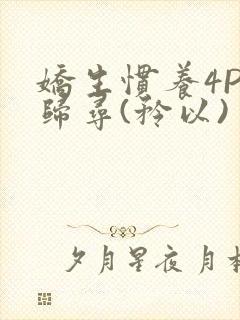 嬌生慣養4P
歸尋(矜以)
夕月星夜月